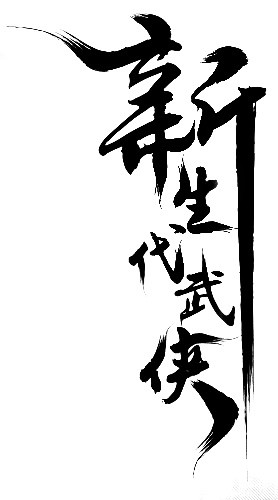 新生代武侠